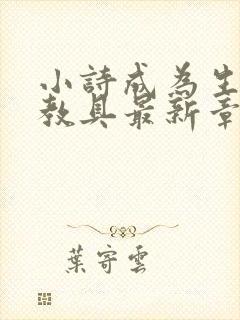 小詩成為生
教具最新章
葉寄雲